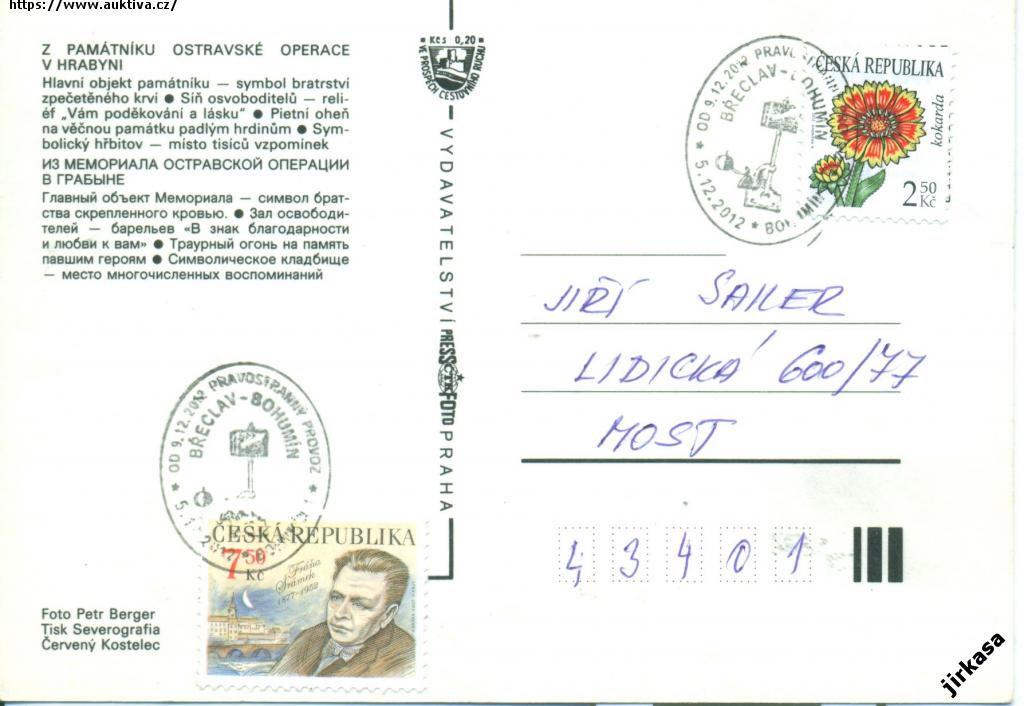 https://www.auktiva.cz/
Z PAMÁTNÍKU OSTRAVSKÉ OPERACE
V HRABYNI
Hlavní objekt památníku — symbol bratrství
zpečetěného krví ● Síň osvoboditelů — reli-
éf „Vám poděkování a lásku“ ● Pietní oheň
na věčnou památku padlým hrdinům ● Sym-
bolický hřbitov — místo tisíců vzpomínek
ИЗ МЕМОРИАЛА ОСТРАВСКОЙ ОПЕРАЦИИ
В ГРАБЫНЕ
Главный объект Мемориала — символ брат-
ства скрепленного кровью. ● Зал освободи-
телей — барельев «В знак благодарности
и любви к вам» ● Траурный огонь на память
павшим героям ● Символическое кладбище
— место многочисленных воспоминаний
Kčs 0,20
VE PROSPĚCH CESTOVNÍHO RUCHU
VYDAVATELSTVÍ PRESSFOTO PRAHA
ČTK
OD 9.12.2012 PRAVOSTRANNÝ
BŘECLAV-BOHUMÍN
* 5.12.2012 * BOHUMÍN
ČESKÁ REPUBLIKA
kokarda
2 50
Kč
JIŘÍ SAILER
LIDICKÁ 600/77
MOST
43401
OD 9.12.2012 PRAVOSTRANNÝ PROVOZ
BŘECLAV-BOHUMÍN
ČESKÁ REPUBLIKA
7 50
Kč
Fráňa
Šrámek
1877-1952
Foto Petr Berger
Tisk Severografia
Červený Kostelec
jirkasa